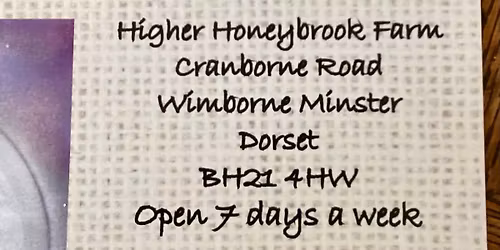 Higher Honeybrook Farm
Cranborne Road
Wimborne Minster
Dorset
BH21 4HW
Open 7 days a week